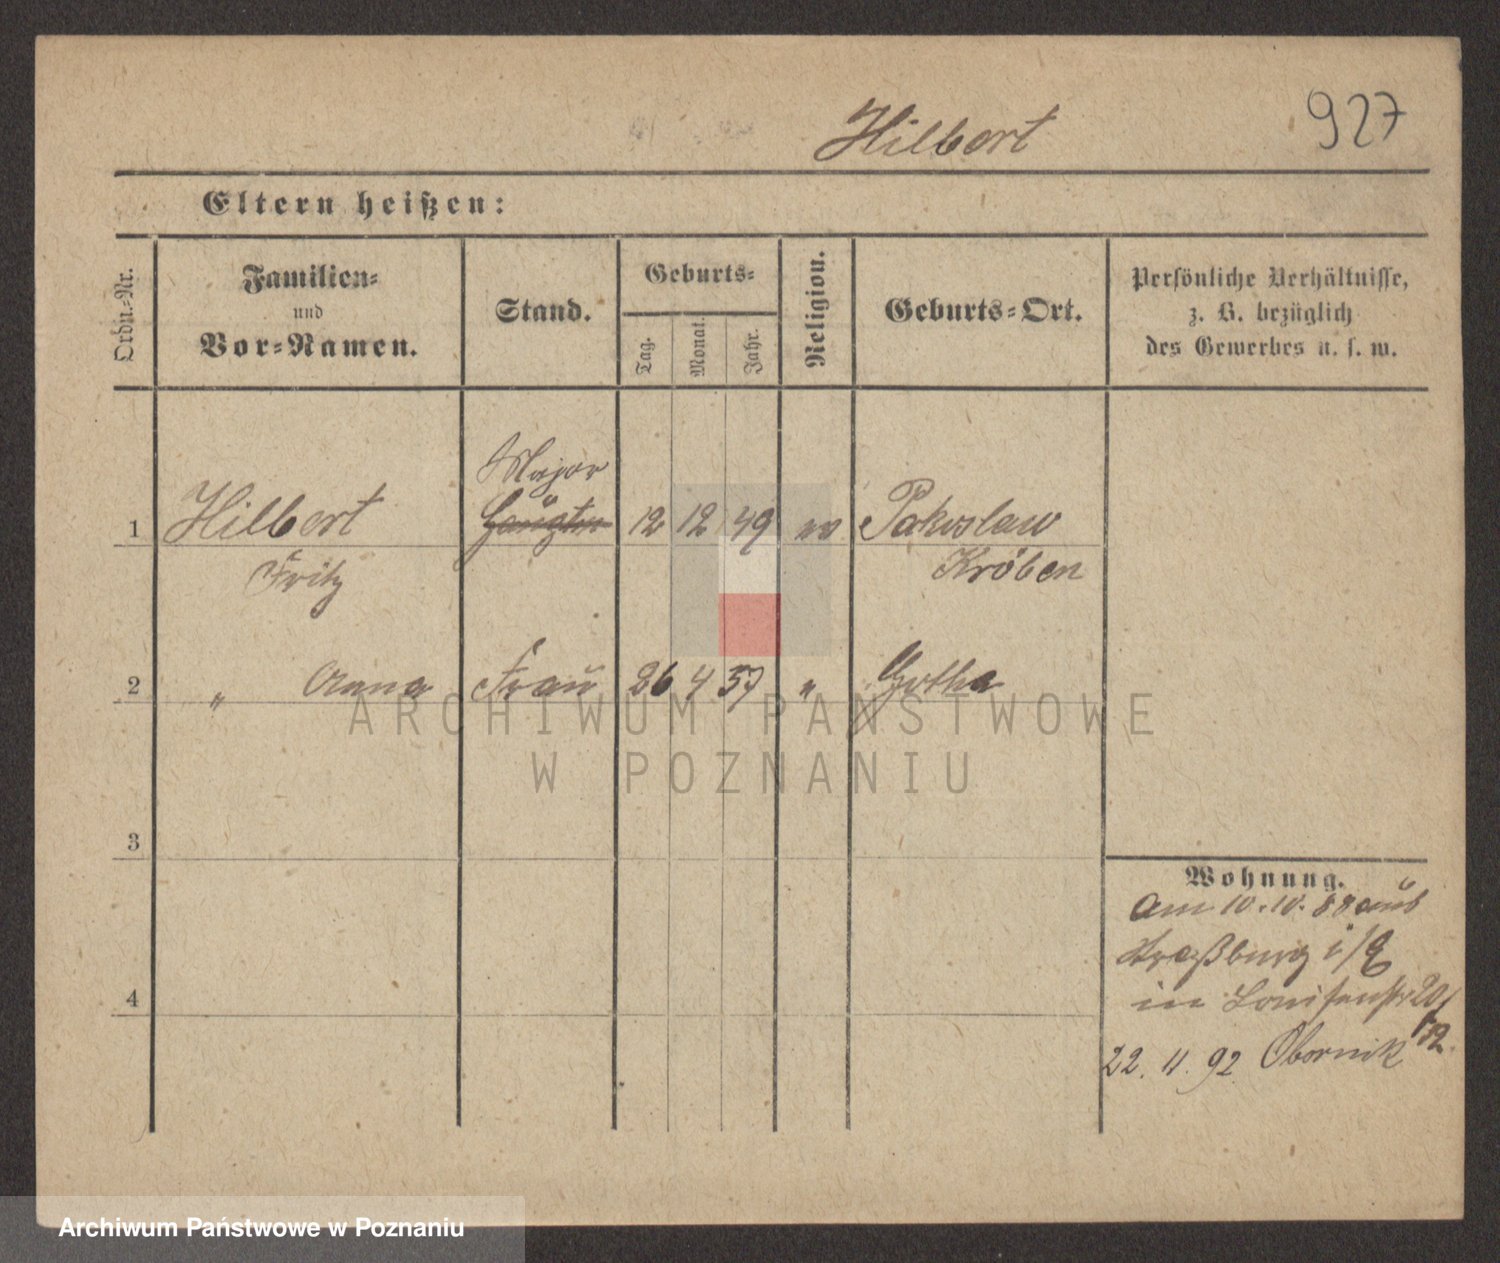 Hilbert
927
Eltern heißen:
Ordn.-Nr.
Familien-
und
Vor-Namen.
Stand.
Geburts-
Tag.
Monat.
Jahr.
Religion.
Geburts-Ort.
Persönliche Verhältnisse,
z. B. bezüglich
des Gewerbes u. s. w.
Major
1 Hilbert 12 12 49 ev Pakoslaw
Fritz Kröben
2 " Anna Frau 26 4 57 " Gotha
ARCHIWUM PAŃSTWOWE
W POZNANIU
3
Wohnung.
Am 10.10.88 aus
Straßburg i/E
in Louisenstr 20
4
22. 11. 92 Obornik
Archiwum Państwowe w Poznaniu